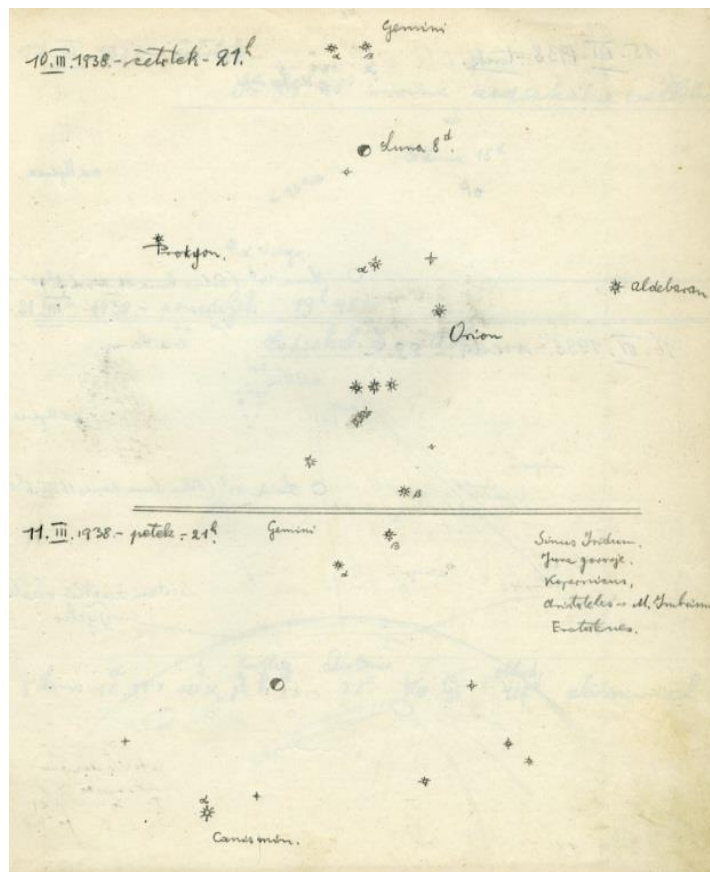 Gemini
α β
10.III.1938.- četrtek - 21.h
Luna 8d.
Prokyon.
α
Aldebaran
Orion
β
11.III.1938.- petek - 21h
Gemini
β
α
Sinus Iridum.
Jura gorovje.
Kopernicus,
Aristoteles - M. Imbrium
α
Canis min.